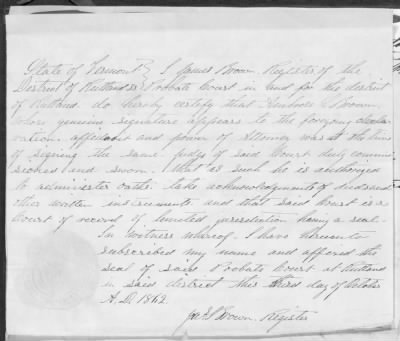 State of Vermont } I James Brown Register of the
District of Rutland ss } Probate Court in and for the district
of Rutland do hereby certify that Ambrose L Brown
whose genuine signature appears to the foregoing declar-
vation affidavit and power of Attorney was at the time
of signing the same judge of said Court duly commis
sioned and sworn. that as such he is authorized
to administer oaths. take acknowledgments of deeds and
other written instruments. and that said Court is a
Court of record of limited jurisdiction having a seal-
In witness whereof. I have hereunto
subscribed my name and affixed the
seal of said Probate Court at Rutland
in said district this third day of October
A.D. 1862.
Jas Brown. Register